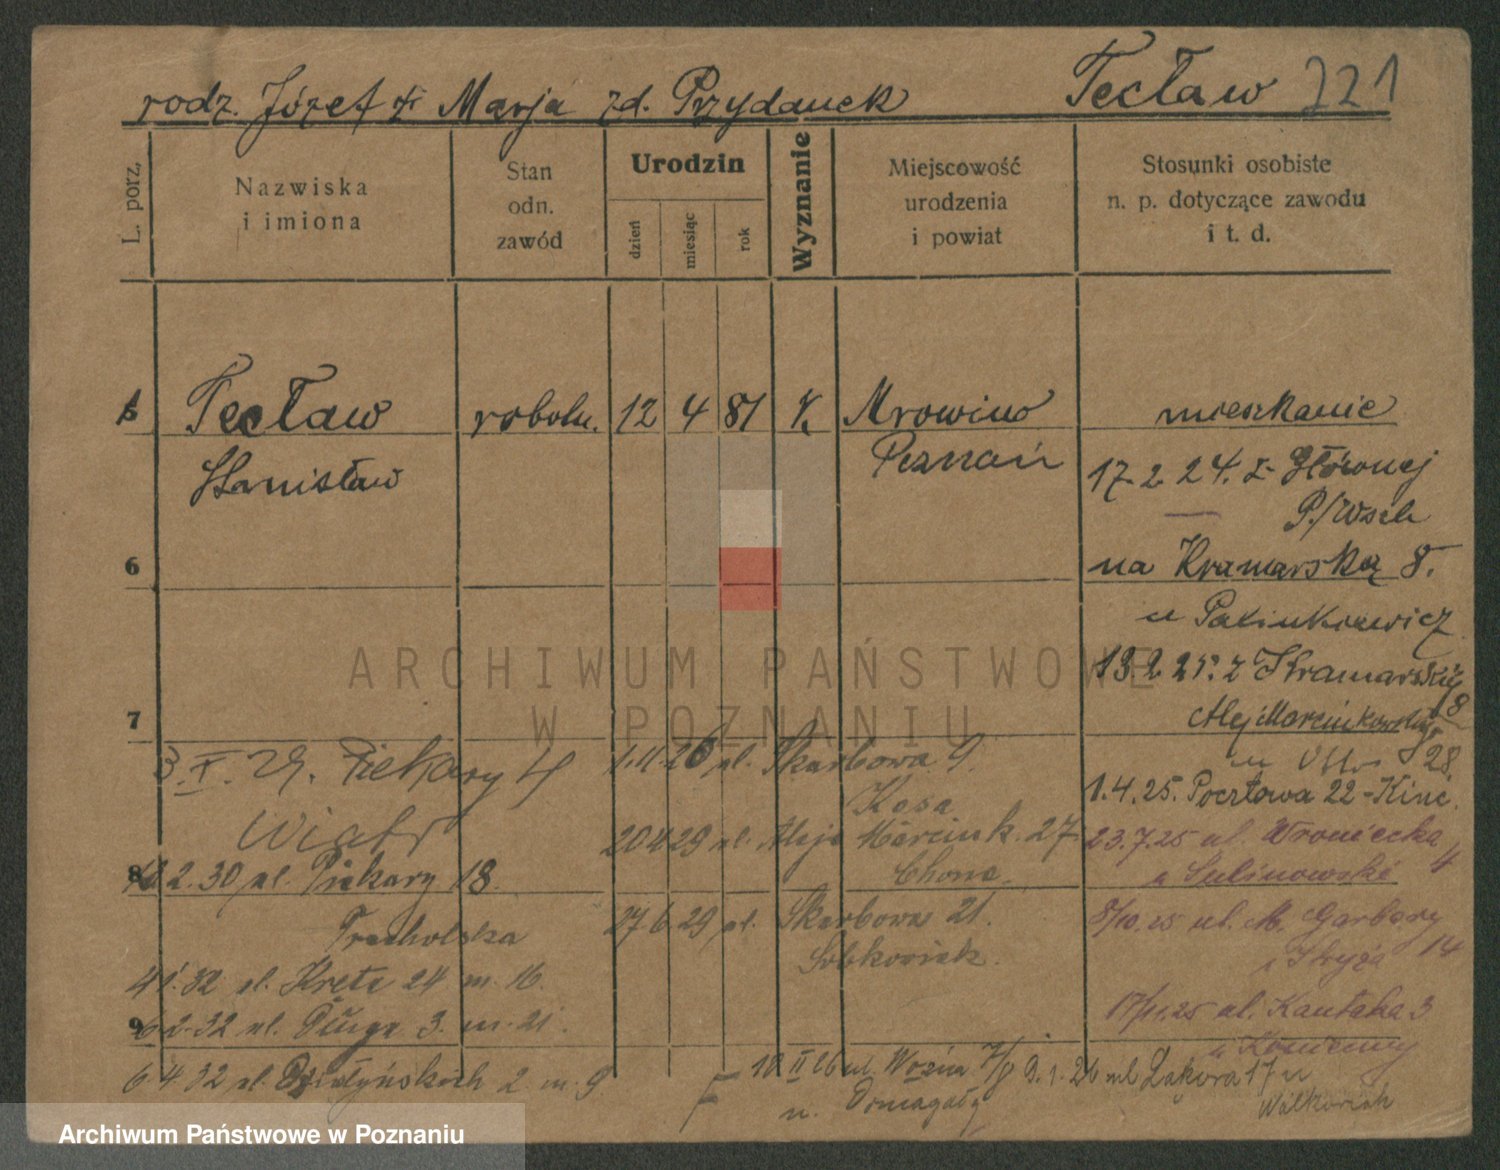 rodz. Józef & Marja zd. Przydanek Tecław 221
L. porz.
Nazwiska
i imiona
Stan
odn.
zawód
Urodzin
dzień
miesiąc
rok
Wyznanie
Miejscowość
urodzenia
i powiat
Stosunki osobiste
n. p. dotyczące zawodu
i t. d.
5 Tecław robotn. 12 4 81 k. Mrowino mieszkanie
Stanisław Poznań
17.2.24. z Głównej
P./Wsch
6
na Kramarską 8.
13.2.25. z Kramarskiej 8
7
Alej Marcinkowskiego
28.
1.4.25. Pocztowa 22 -
23.7.25 ul. Wroniecka 4
u Sulinowski
8/10.25 ul. M. Garbary 14
17/11.25 ul. Kantaka 3
9.1.26 ul. Łąkowa 17 u
Walkowiak
10 II 26 ul. Woźna 7/8
u. Domagały
1.11.26 ul. Skarbowa 9.
Kasa
20 4 29 ul. Aleje Marcink. 27
Chona.
27 6 29 ul. Skarbowa 21.
Sobkowiak.
3.X.29. Piekary 4
Wiatr
8
2.30 ul. Piekary 18.
4 1.32 ul. Kręta 24 m. 16.
9
6 2.32 ul. Długa 3. m. 21.
6 4.32 ul. Działyńskich 2 m. 9
ARCHIWUM PAŃSTWOWE
W POZNANIU
Archiwum Państwowe w Poznaniu